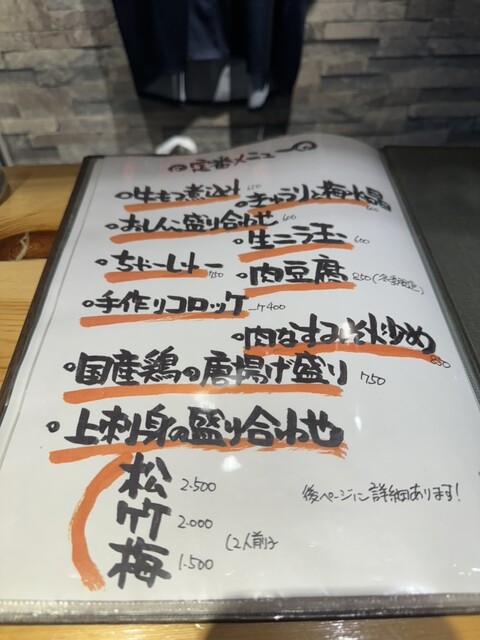 定番メニュー
牛もつ煮込み 650
きゅうりと梅水晶 600
おしんこ盛り合わせ 600
生ニラ玉 600
ちゃーしゅー 750
肉豆腐 850
手作りコロッケ 一ケ400
肉なすみそ炒め 850
国産鶏の唐揚げ盛り 750
上刺身の盛り合わせ
松 2.500
竹 2.000
梅 1.500
後ページに詳細あります!